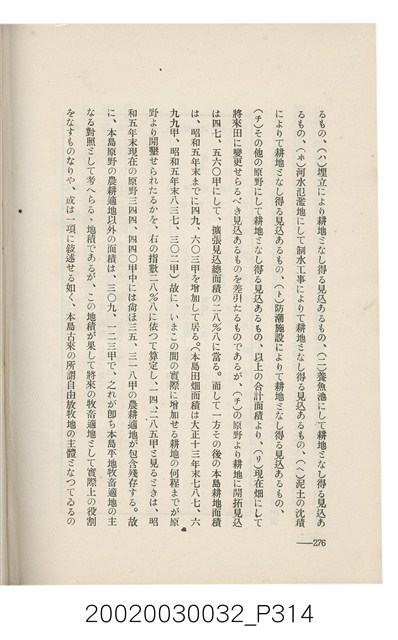 るもの、(ハ)埋立により耕地となし得る見込あるもの、(ニ)養魚池にして耕地となし得る見込あ
るもの、(ホ)河水氾濫地にして制水工事によりて耕地となし得る見込あるもの、(ヘ)泥土の沈積
によりて耕地となし得る見込あるもの、(ト)防潮施設によりて耕地となし得る見込あるもの、
(チ)その他の原野にして耕地となし得る見込あるもの、以上の合計面積より、(リ)現在畑にして
將來田に變更せらるべき見込あるものを差引たるものであるが、(チ)の原野より耕地に開拓見込
は四七、五六〇甲にして、擴張見込總面積の二八%八に當る。而して一方その後の本島耕地面積
は、昭和五年末までに四九、六〇三甲を增加して居る。(本島田畑面積は大正十三年末七八七、六
九九甲、昭和五年末八三七、三〇二甲)故に、いまこの間の實際に增加せる耕地の何程までが原
野より開墾せられたるかを、右の指數二八%八に依つて算定し、一四、二八五甲と見るときは、昭
和五年末現在の原野三四四、四四〇甲中には尙ほ三五、三一八甲の農耕適地が包含殘存する。故
に、本島原野の農耕適地以外の面積は、三〇九、一二三甲で、之れが卽ち本島平地牧畜適地の主
なる對照として考へらるゝ地積であるが、この地積が果して將來の牧畜適地として實際上の役割
をなすものなりや、或は一項に敍述せる如く、本島古來の所謂自由放牧地の主體となつてゐるの
276
20020030032_P314